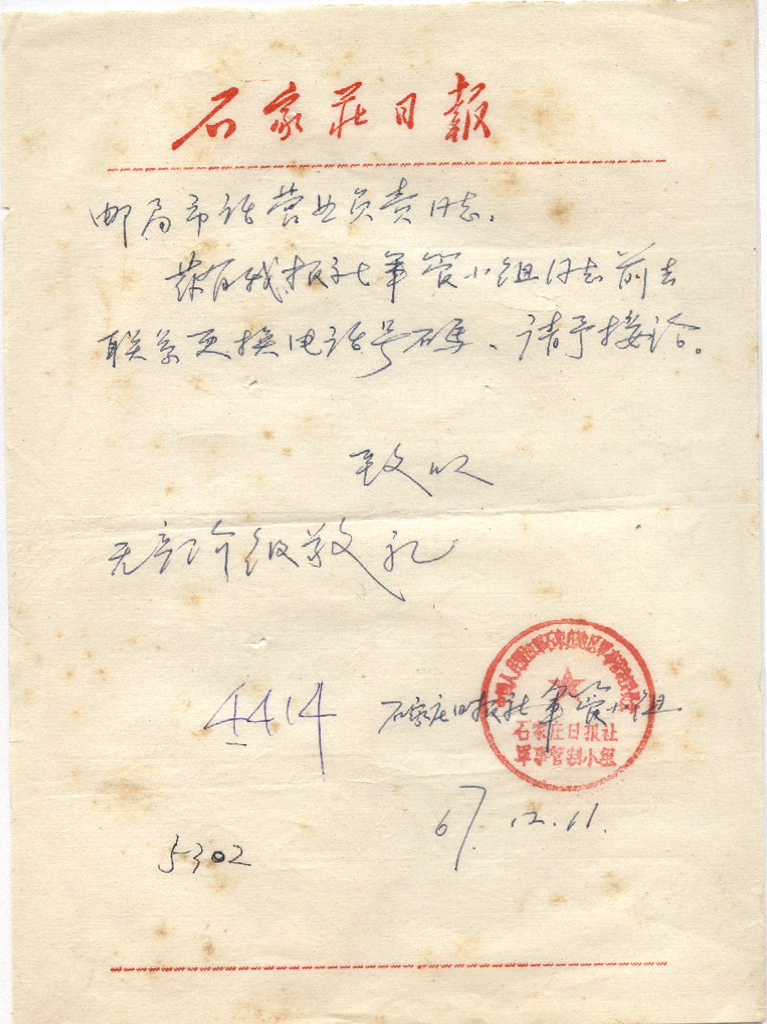 石家莊日報
邮局市话营业负责同志、
兹有我报社军管小组同志前去
联系更换电话号码、请予接洽。
致以
无产阶级敬礼
4414
石家庄日报社军管小组
中国人民解放军石家庄地区军事管制委员会
石家庄日报社
军事管制小组
67.12.11.
5302